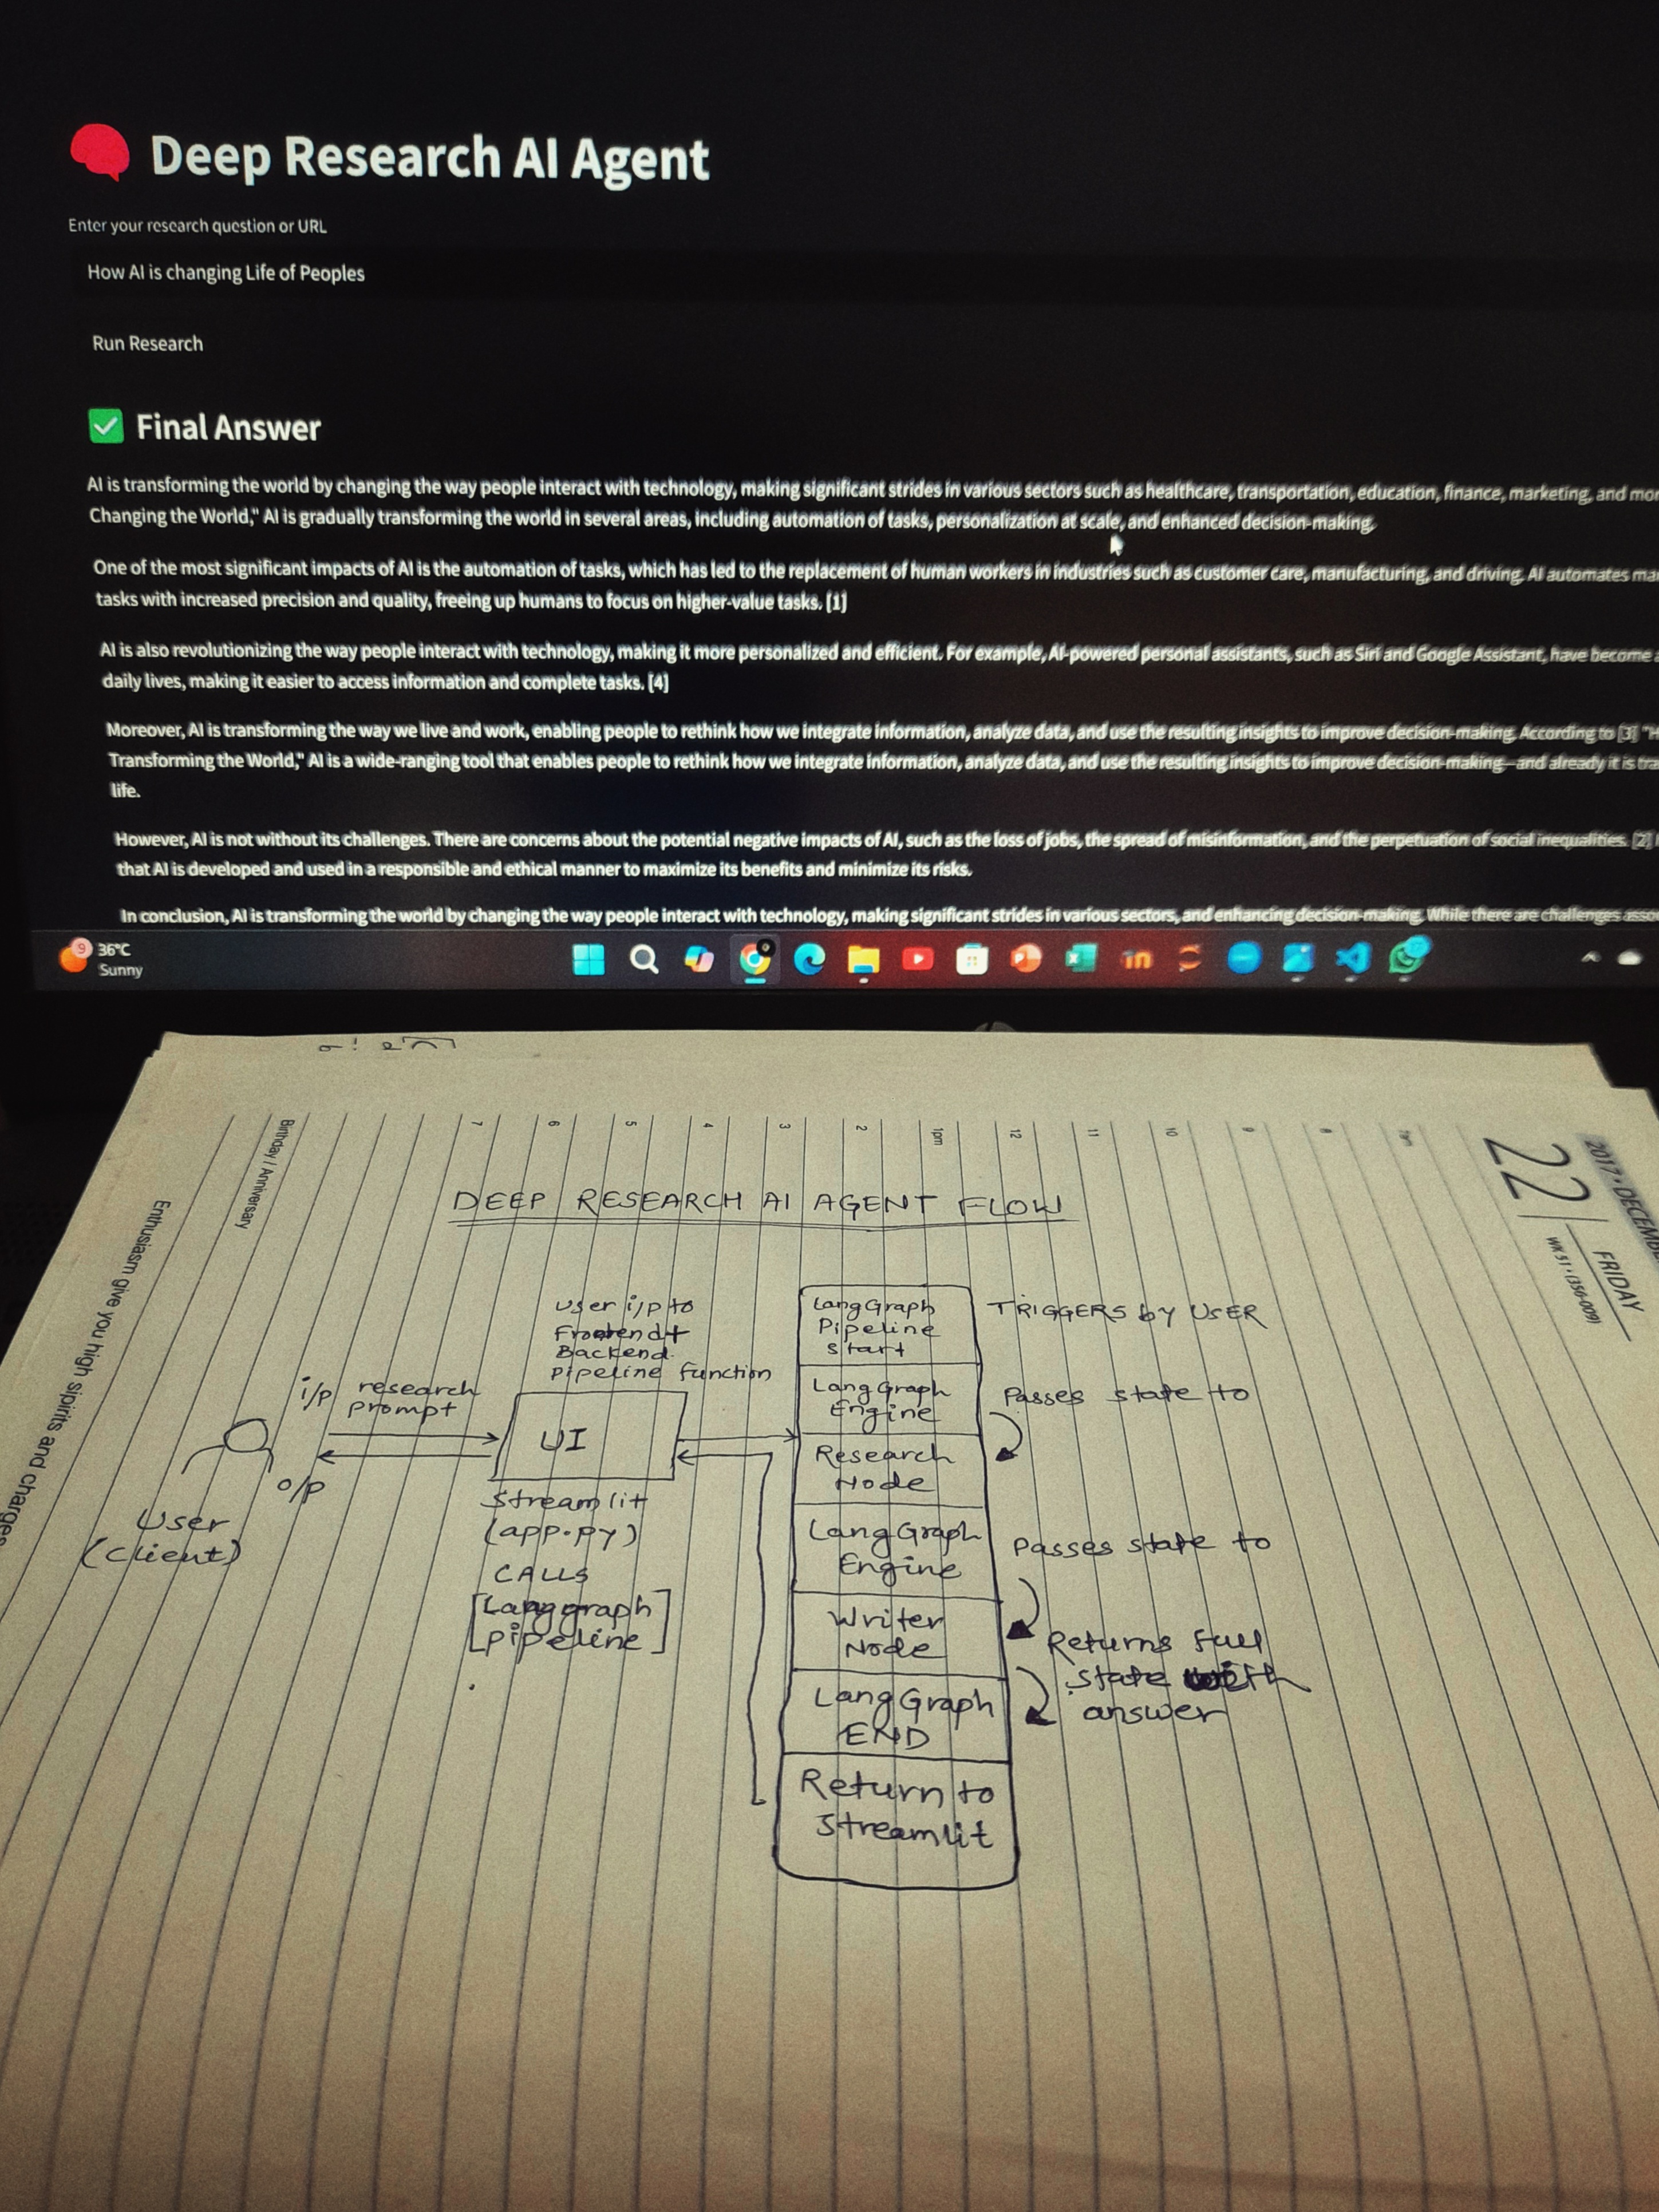 Deep Research AI Agent
Enter your research question or URL
How AI is changing Life of Peoples
Run Research
Final Answer
AI is transforming the world by changing the way people interact with technology, making significant strides in various sectors such as healthcare, transportation, education, finance, marketing, and
Changing the World," AI is gradually transforming the world in several areas, including automation of tasks, personalization at scale, and enhanced decision-making.
One of the most significant impacts of AI is the automation of tasks, which has led to the replacement of human workers in industries such as customer care, manufacturing, and driving. AI automates
tasks with increased precision and quality, freeing up humans to focus on higher-value tasks. [1]
AI is also revolutionizing the way people interact with technology, making it more personalized and efficient. For example, AI-powered personal assistants, such as Siri and Google Assistant, have become
daily lives, making it easier to access information and complete tasks. [4]
Moreover, AI is transforming the way we live and work, enabling people to rethink how we integrate information, analyze data, and use the resulting insights to improve decision-making. According to [3]
Transforming the World," AI is a wide-ranging tool that enables people to rethink how we integrate information, analyze data, and use the resulting insights to improve decision-making—and already it is
life.
However, AI is not without its challenges. There are concerns about the potential negative impacts of AI, such as the loss of jobs, the spread of misinformation, and the perpetuation of social inequalities. [2]
that AI is developed and used in a responsible and ethical manner to maximize its benefits and minimize its risks.
In conclusion, AI is transforming the world by changing the way people interact with technology, making significant strides in various sectors, and enhancing decision-making. While there are challenges
9
36°C
Sunny
7 6 5 4 3 2 1pm 12 11 10 9 8
2017 • DECEMBER
22
FRIDAY
WK 51 • (356-009)
Birthday / Anniversary
Enthusiasm give you high sipirits and charges
DEEP RESEARCH AI AGENT FLOW
User i/p to
Frontend +
Backend
Pipeline function
i/p research
prompt
UI
o/p
User
(client)
Streamlit
(app.py)
CALLS
[Langgraph
pipeline]
LangGraph
Pipeline
Start
TRIGGERS by USER
LangGraph
Engine
Passes state to
Research
Node
LangGraph
Engine
Passes state to
Writer
Node
Returns full
state with
answer
LangGraph
END
Return to
Streamlit